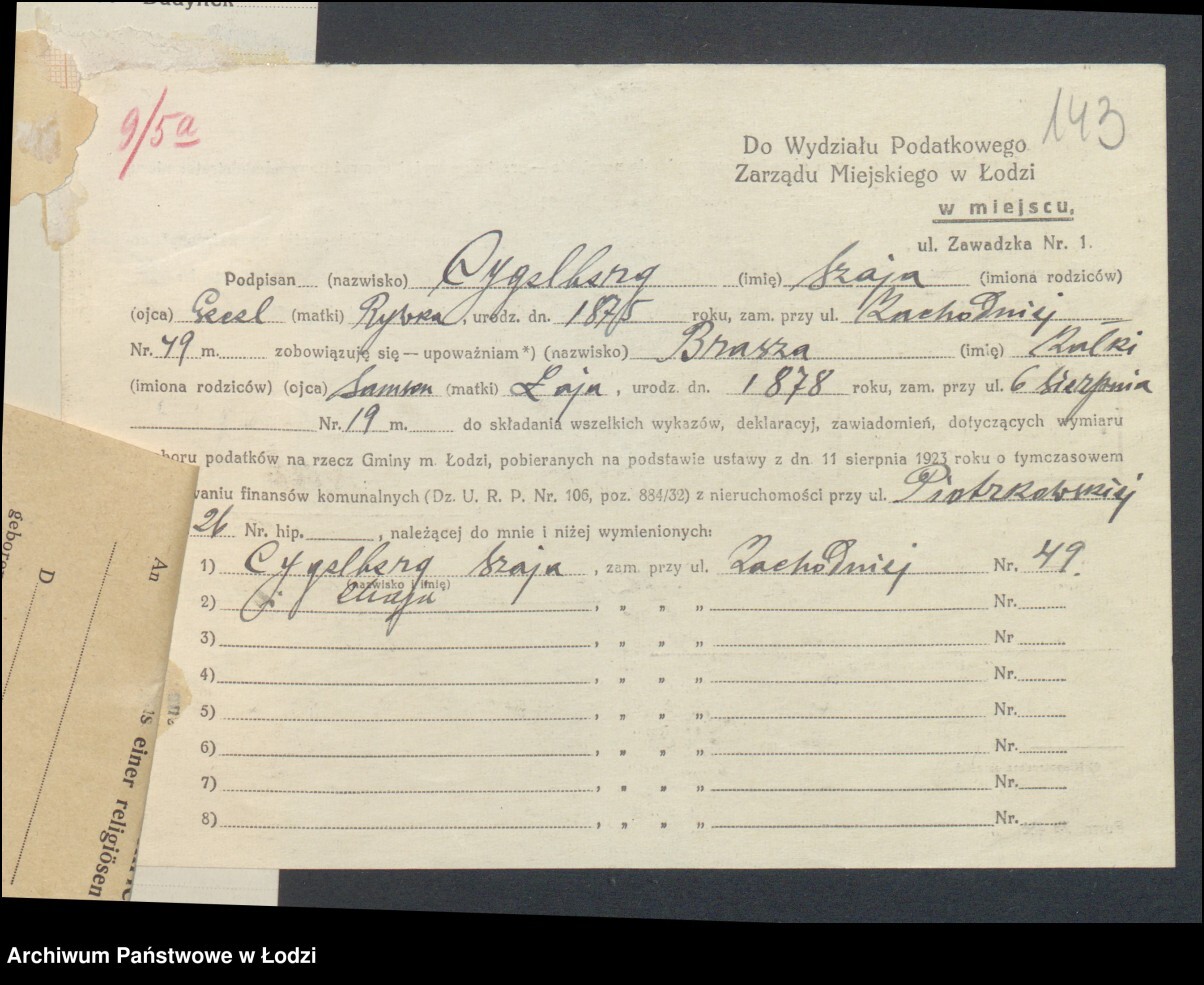 Budynek
9/5a
143
Do Wydziału Podatkowego
Zarządu Miejskiego w Łodzi
w miejscu,
ul. Zawadzka Nr. 1.
Podpisan (nazwisko) Cygelberg (imię) Szaja (imiona rodziców)
(ojca) (matki) Rywka, urodz. dn. 1875 roku, zam. przy ul. Zachodniej
Nr. 49 m. zobowiązuję się — upoważniam *) (nazwisko) Brasza (imię)
(imiona rodziców) (ojca) Samson (matki) Łaja, urodz. dn. 1878 roku, zam. przy ul. 6 Sierpnia
Nr. 19 m. do składania wszelkich wykazów, deklaracyj, zawiadomień, dotyczących wymiaru
boru podatków na rzecz Gminy m. Łodzi, pobieranych na podstawie ustawy z dn. 11 sierpnia 1923 roku o tymczasowem
waniu finansów komunalnych (Dz. U. R. P. Nr. 106, poz. 884/32) z nieruchomości przy ul. Piotrkowskiej
26 Nr. hip. , należącej do mnie i niżej wymienionych:
1) Cygelberg Szaja , zam. przy ul. Zachodniej Nr. 49.
(nazwisko i imię)
2) , „ „ „ Nr.
3) , „ „ „ Nr
4) , „ „ „ Nr.
5) , „ „ „ Nr.
6) , „ „ „ Nr.
7) , „ „ „ Nr.
8) , „ „ „ Nr.
An
D
gebore
s einer religiösen
Archiwum Państwowe w Łodzi